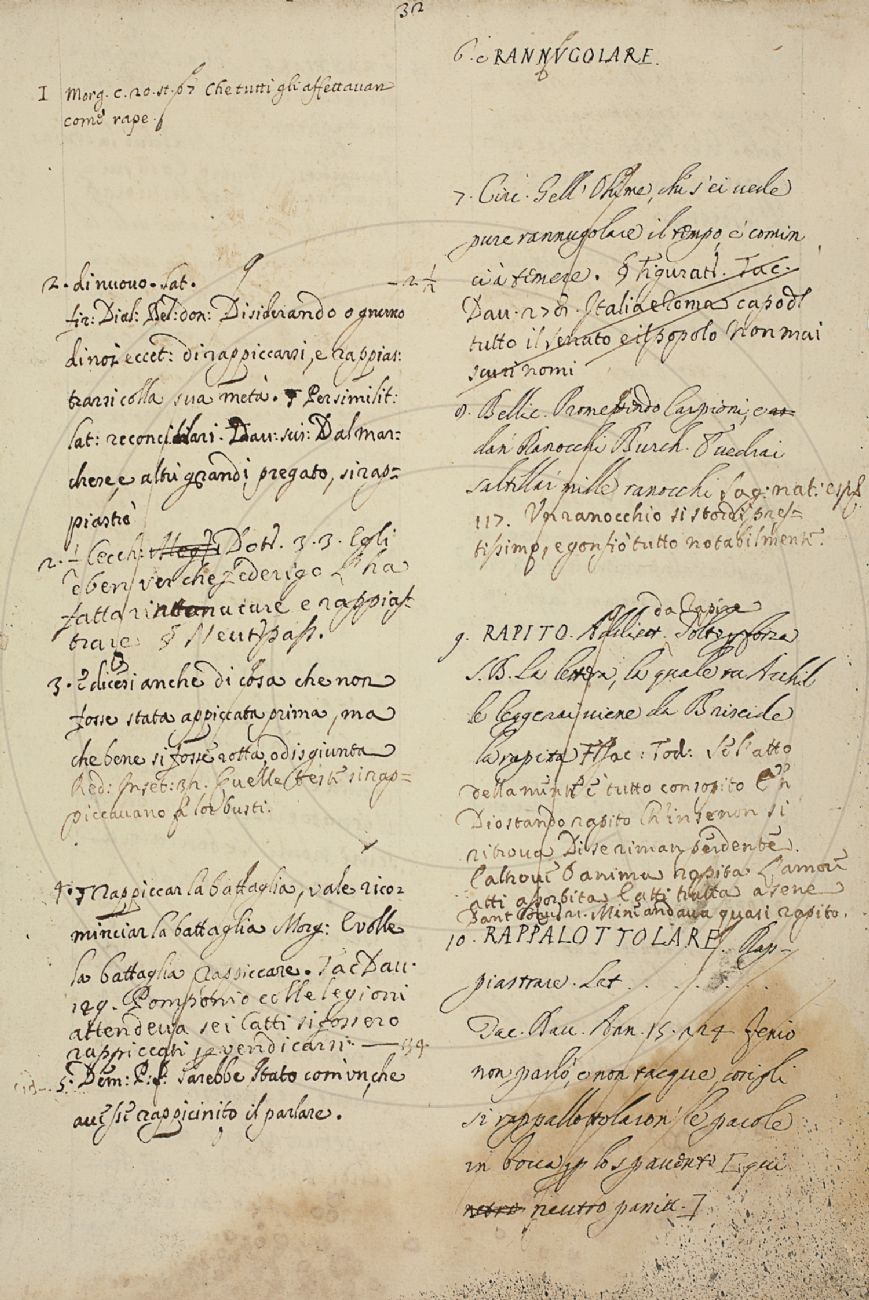 32
I Morg. c. 20. st. 67 Che tutti gli affettavan
come rape.
2. di nuovo. Lat. — 2 1/2
fir: Dial: Bel: don: Disiderando ognuno
di noi eccet: di rappiccarsi, e rappias:
trarsi colla sua metà. § Per similit:
lat: reconciliari. Dau: sci: Dal mar:
chese, e altri grandi pregato, si rap=
piastrò
2. 1/2 Cecch. Dot. 3. 3. Egli
è ben ver che Federigo l'ha
fatta e rappias
trare § Neut. pass.
3. E dicesi anche di cosa che non
fosse stata appiccata prima, ma
che bene si fosse rotta, o disgiunta
Red: Inset: 34. Quelle teste si rap=
piccavano a' lor busti.
4. § Rappiccar la battaglia, vale rico=
minciar la battaglia Morg: E volle
la battaglia rappiccare. Tac Dau.
129. Pomponio colle legioni
attendeva se i Catti si fossero
rappiccati p vendicarsi — 134
5. Dem: P. S. Sarebbe stato comun, che
avesse rappicinito il parlare.
6. RANNUGOLARE.
7. Circ. Gell. Ohime, chi s'ei vede
pure rannugolare il tempo, e comin
cia à temere. § Figurat. Tac.
Dau. 278. Italia e Roma capo di
tutto il Senato e il popolo Non mai
nomi
8. Bellic. Promettendo Carpioni, e
dan Ranocchi Burch. Tu vedrai
saltellar mille ranocchi Sag: nat: esp
117. Un ranocchio si stordì pres-
tissim, e gonfiò tutto notabilmente.
da Rapire
9. RAPITO. Addiett. Tolto p forza
S. B. La lettera, la quale tu Achil
le leggerai viene da Briseide
la rapita Fr Iac: Tod: Se l'atto
della mente è tutto consopito En
Dio stando rapito Ch'in se non si
ritrova
l'anima rapita L'amore
atti tratta a sene
Dant. Mi n'andava quasi rapito.
10. RAPPALLOTTOLARE. Rap-
piastrare. Lat . . . . . .
Tac. Dau. Ann. 15. 224 Fenio
non parlò, e non tacque, cosigli
si rappallottolaron' le parole
in bocca p lo spavento [qui
neutro passi. ]